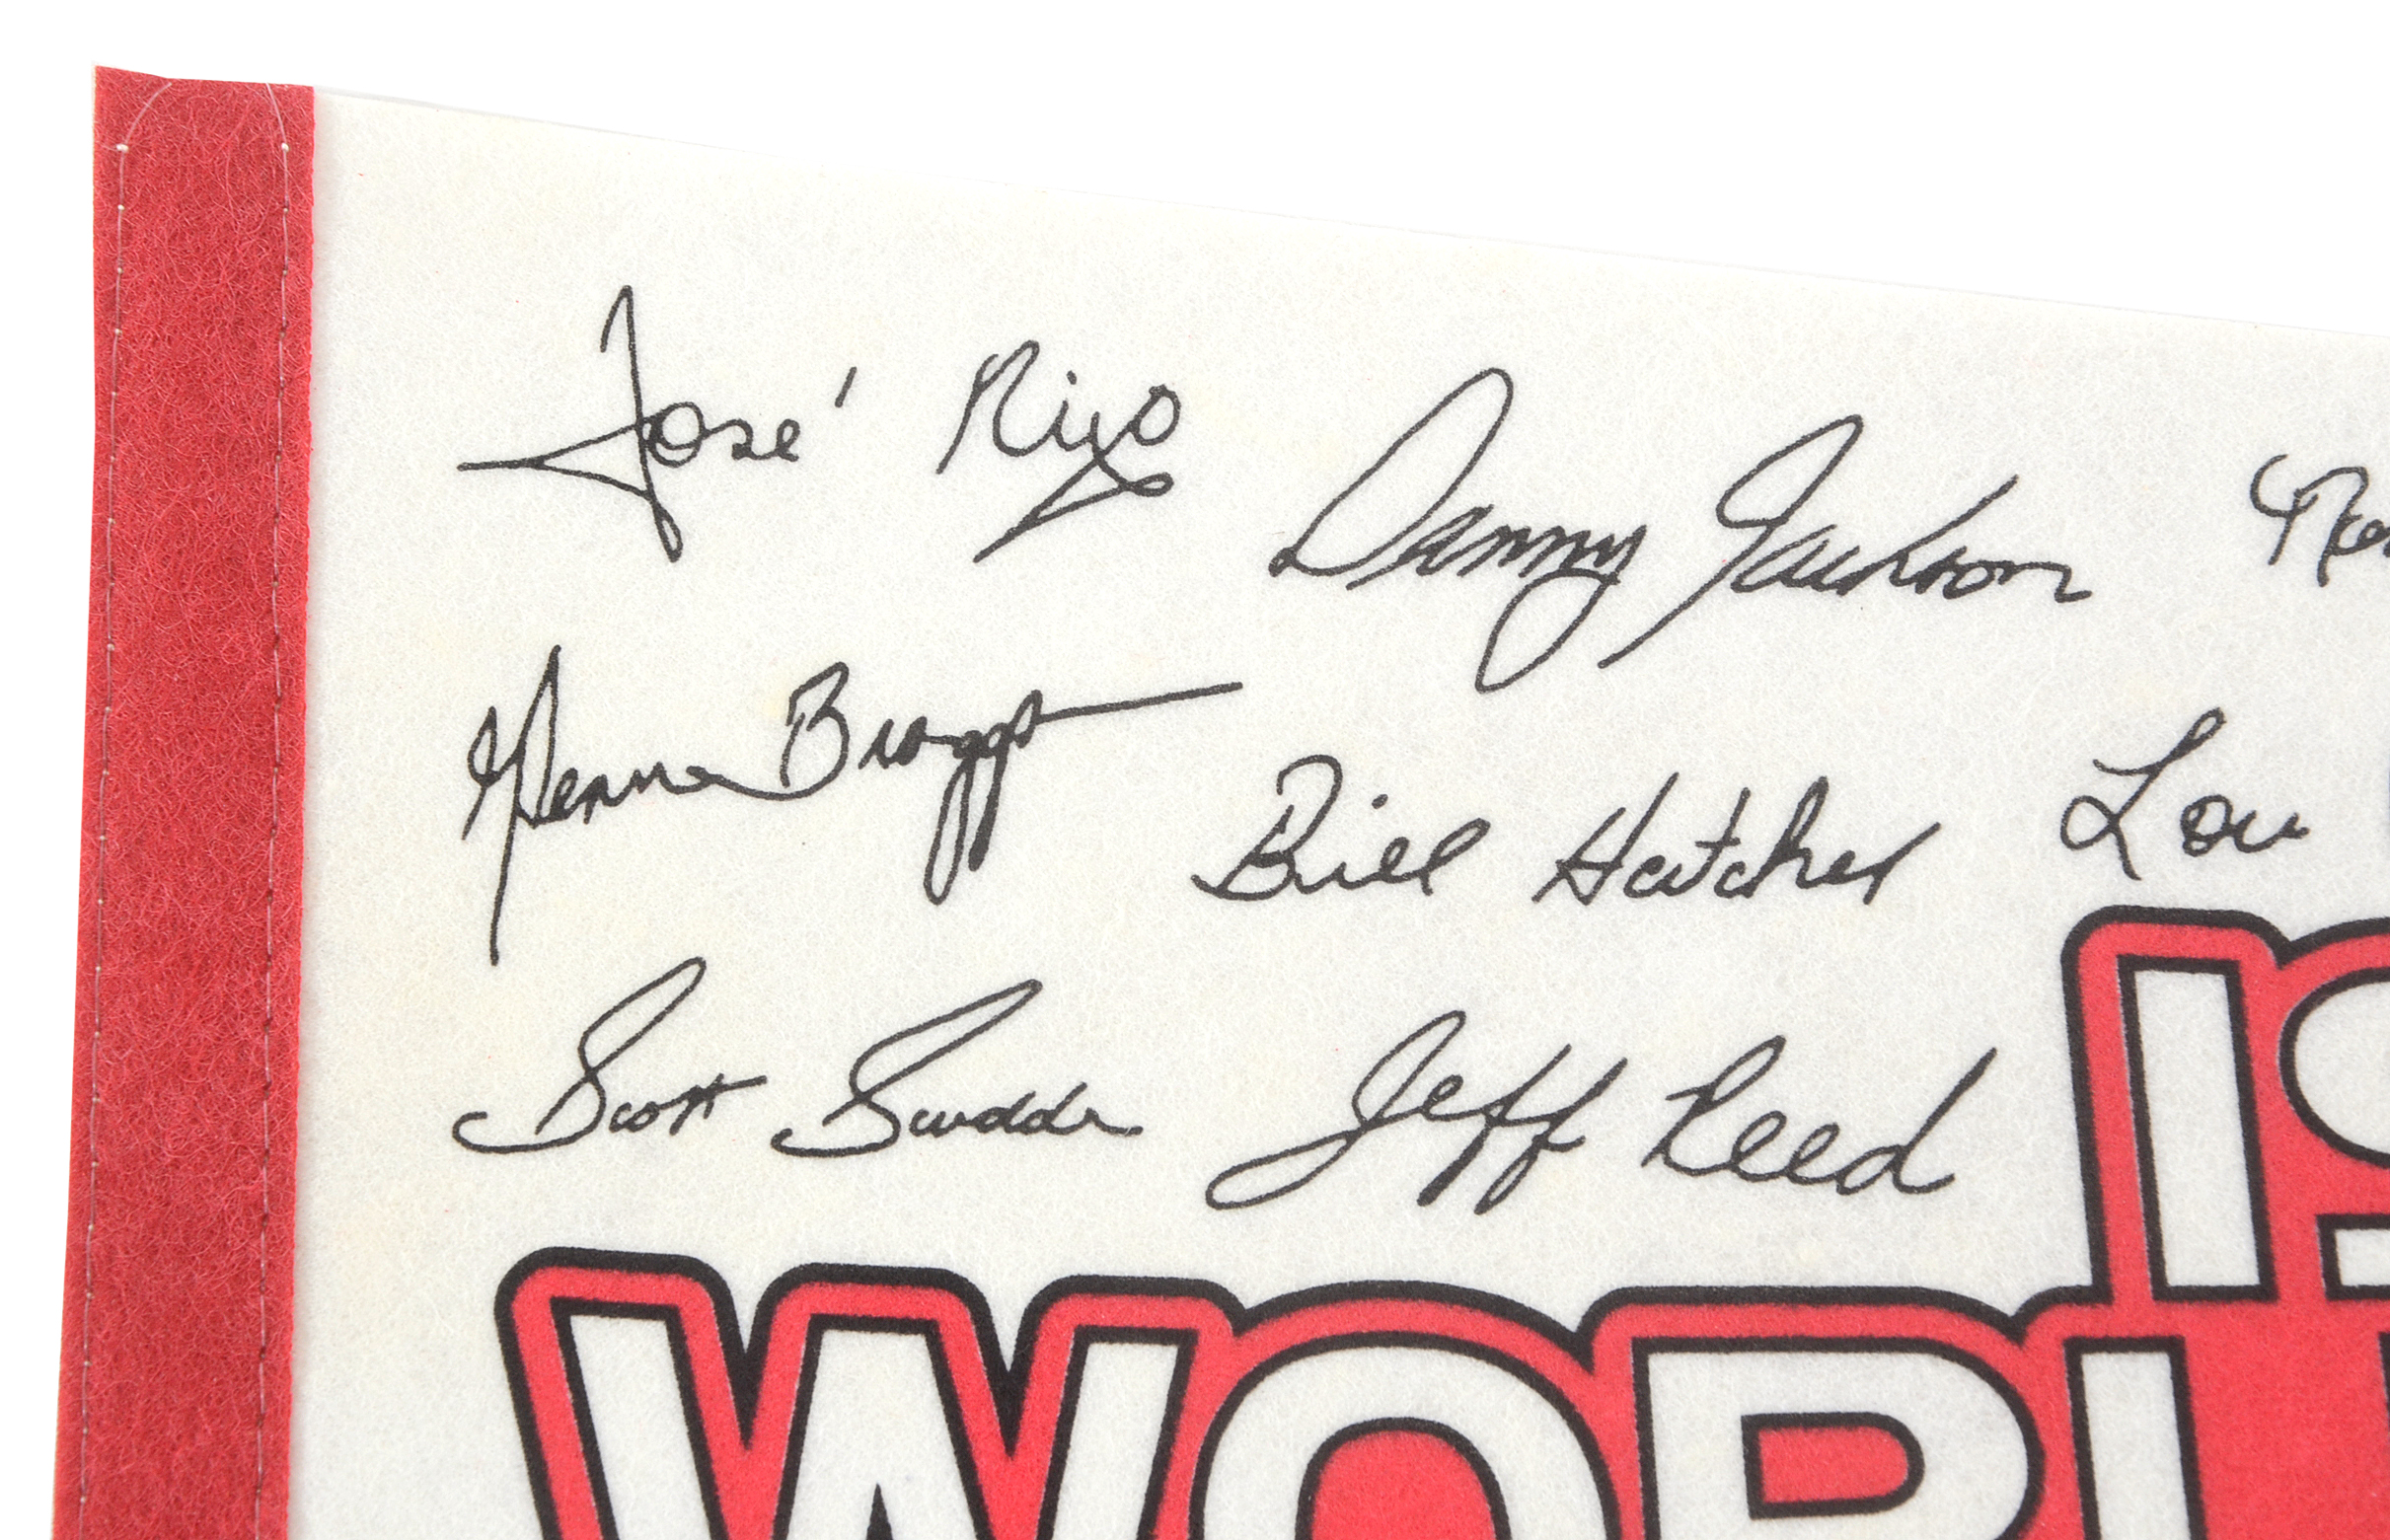 José Rijo Danny Jackson
Glenn Braggs Bill Hatcher Lou
Scott Scudder Jeff Reed
19
WORL